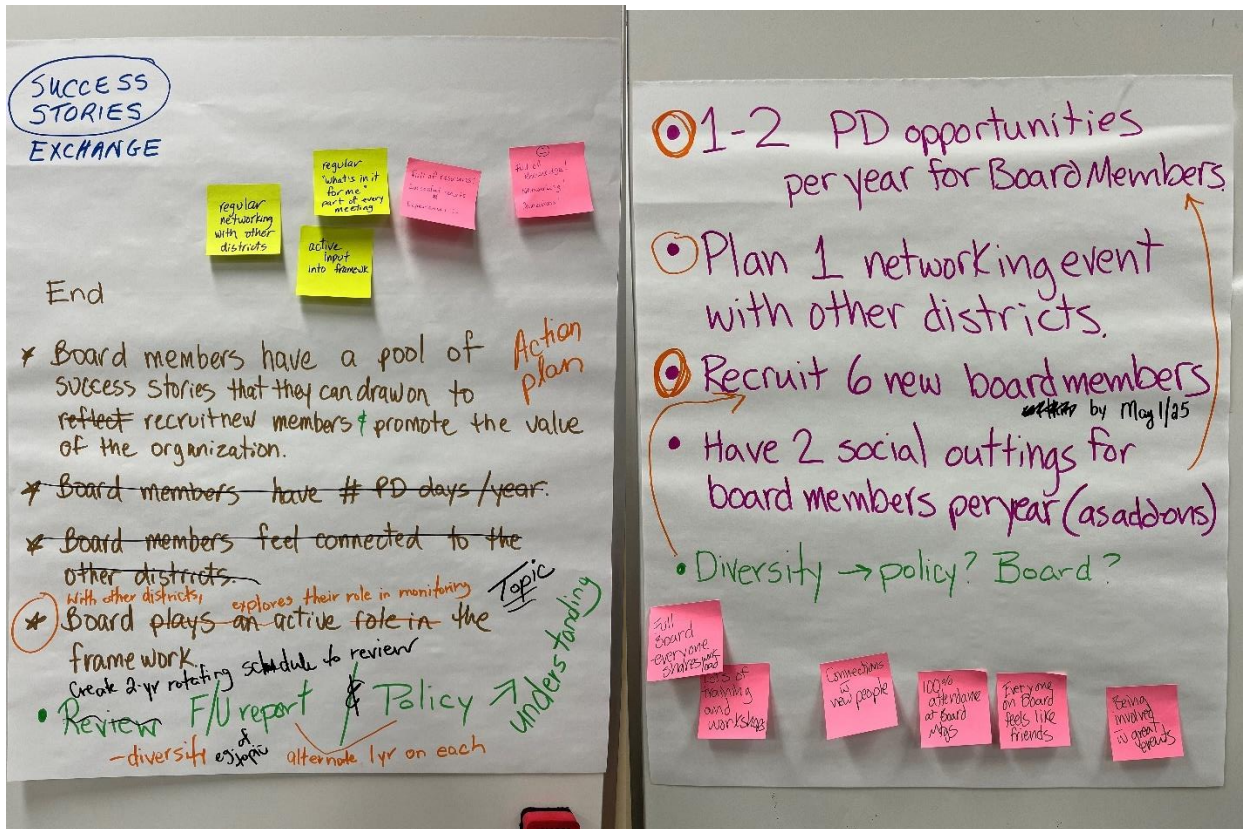 SUCCESS
STORIES
EXCHANGE
regular
networking
with other
districts
regular
"what's in it
for me"
part of every
meeting
active
input
into framewk
Full of
knowledge!
networking!
End
* Board members have a pool of
success stories that they can draw on to
reflect recruit new members & promote the value
of the organization.
Action
plan
* Board members have # PD days/year.
* Board members feel connected to the
other districts.
with other districts, explores their role in monitoring
* Board plays an active role in the
framework.
Topic
Create 2-yr rotating schedule to review
• Review F/U report & Policy → understanding
- diversity eg. of topic alternate 1yr on each
• 1-2 PD opportunities
per year for Board Members.
• Plan 1 networking event
with other districts.
• Recruit 6 new board members
by May 1/25
• Have 2 social outtings for
board members per year (as add-ons)
• Diversity → policy? Board?
Full
Board
everyone
shares work
load
lots of
training
and
workshops
Connections
w
new people
100%
attendane
at Board
Mtgs
Everyone
on Board
feels like
friends
Being
involved
w great
events